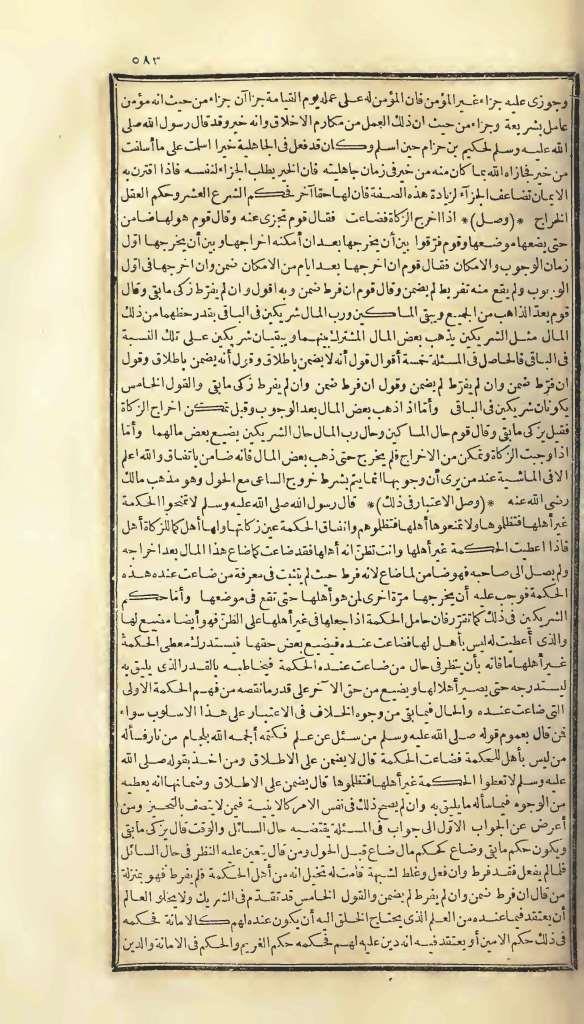 ٥٨٣
وجوزى عليه جزاء غير المؤمن فان المؤمن له على عمله يوم القيامة جزاآن جزاء من حيث انه مؤمن
عامل بشريعة وجزاء من حيث ان ذلك العمل من مكارم الاخلاق وانه خير وقد قال رسول الله صلى
الله عليه وسلم لحكيم بن حزام حين اسلم وكان قد فعل فى الجاهلية خيرا اسلمت على ما أسلفت
من خير فجازاه الله بما كان منه من خير فى زمان جاهليته فان الخير يطلب الجزاء لنفسه فاذا اقترن به
الايمان تضاعف الجزاء لزيادة هذه الصفة فان لها حقا آخر فحكم الشرع العشر وحكم العقل
الخراج *(وصل)* اذا اخرج الزكاة فضاعت فقال قوم تجزى عنه وقال قوم هو لها ضامن
حتى يضعها موضعها وقوم فرّقوا بين أن يخرجها بعد ان أمكنه اخراجها وبين أن يخرجها اوّل
زمان الوجوب والامكان فقال قوم ان اخرجها بعد ايام من الامكان ضمن وان اخرجها فى اوّل
الوجوب ولم يقع منه تفريط لم يضمن وقال قوم ان فرط ضمن وبه اقول وان لم يفرّط زكى ما بقى وقال
قوم يعدّ الذاهب من الجميع ويبقى المساكين ورب المال شريكين فى الباقى بقدر حظهما من ذلك
المال مثل الشريكين يذهب بعض المال المشترك بينهما ويبقيان شريكين على تلك النسبة
فى الباقى فالحاصل فى المسئلة خمسة أقوال قول أنه لا يضمن باطلاق وقول أنه يضمن باطلاق وقول
ان فرّط ضمن وان لم يفرّط لم يضمن وقول ان فرط ضمن وان لم يفرط زكى ما بقى والقول الخامس
يكونان شريكين فى الباقى وأمّا اذا ذهب بعض المال بعد الوجوب وقبل تمكن اخراج الزكاة
فقيل يزكى ما بقى وقال قوم حال المساكين وحال رب المال حال الشريكين يضيع بعض مالهما وأمّا
اذا وجبت الزكاة وتمكن من الاخراج فلم يخرج حتى ذهب بعض المال فانه ضامن باتفاق والله اعلم
الا فى الماشية عند من يرى أن وجوبها انما يتم بشرط خروج الساعى مع الحول وهو مذهب مالك
رضى الله عنه *(وصل الاعتبار فى ذلك)* قال رسول الله صلى الله عليه وسلم لا تمنحوا الحكمة
غير أهلها فتظلموها ولا تمنعوها أهلها فتظلموهم وانفاق الحكمة عين زكاتها ولها أهل كما للزكاة أهل
فاذا اعطيت الحكمة غير أهلها وانت تظنّ انه أهلها فقد ضاعت كما ضاع هذا المال بعد اخراجه
ولم يصل الى صاحبه فهو ضامن لما ضاع لانه فرط حيث لم يتثبت فى معرفة من ضاعت عنده هذه
الحكمة فوجب عليه أن يخرجها مرّة اخرى لمن هو أهلها حتى تقع فى موضعها وأما حكم
الشريكين فى ذلك كما تقرّر فان حامل الحكمة اذا جعلها فى غير أهلها على الظنّ فهو أيضا مضيع لها
والذى أعطيت له ليس بأهل لها فضاعت عنده فيضيع بعض حقها فيستدرك معطى الحكمة
غير أهلها ما فاته بأن ينظر فى حال من ضاعت عنده الحكمة فيخاطبه بالقدر الذى يليق به
ليستدرجه حتى يصير أهلا لها ويضيع من حق الآخر على قدر ما نقصه من فهم الحكمة الاولى
التى ضاعت عنده والحال فيما بقى من وجوه الخلاف فى الاعتبار على هذا الاسلوب سواء
فمن قال بعموم قوله صلى الله عليه وسلم من سئل عن علم فكتمه ألجمه الله بلجام من نار فسأله
من ليس بأهل للحكمة فضاعت الحكمة قال لا يضمن على الاطلاق ومن اخذ بقوله صلى الله
عليه وسلم لا تعطوا الحكمة غير أهلها فتظلموها قال يضمن على الاطلاق وضمانها انه يعطيه
من الوجوه فيما سأله ما يليق به وان لم يصح ذلك فى نفس الامر كالاينية فيمن لا يتصف بالتحيز ومن
أعرض عن الجواب الاوّل الى جواب فى المسئلة يقتضيه حال السائل والوقت قال يزكى ما بقى
ويكون حكم ما بقى وضاع كحكم مال ضاع قبل الحول ومن قال يتعين عليه النظر فى حال السائل
فلما لم يفعل فقد فرط وان فعل وغلط لشبهة قامت له تخيل انه من أهل الحكمة فلم يفرط فهو بمنزلة
من قال ان فرط ضمن وان لم يفرط لم يضمن والقول الخامس قد تقدّم فى الشريك ولا يخلو العالم
أن يعتقد فيما عنده من العلم الذى يحتاج الخلق اليه أن يكون عنده لهم كالامانة فحكمه
فى ذلك حكم الامين أو يعتقد فيه انه دين عليه لهم فحكمه حكم الغريم والحكم فى الامانة والدين